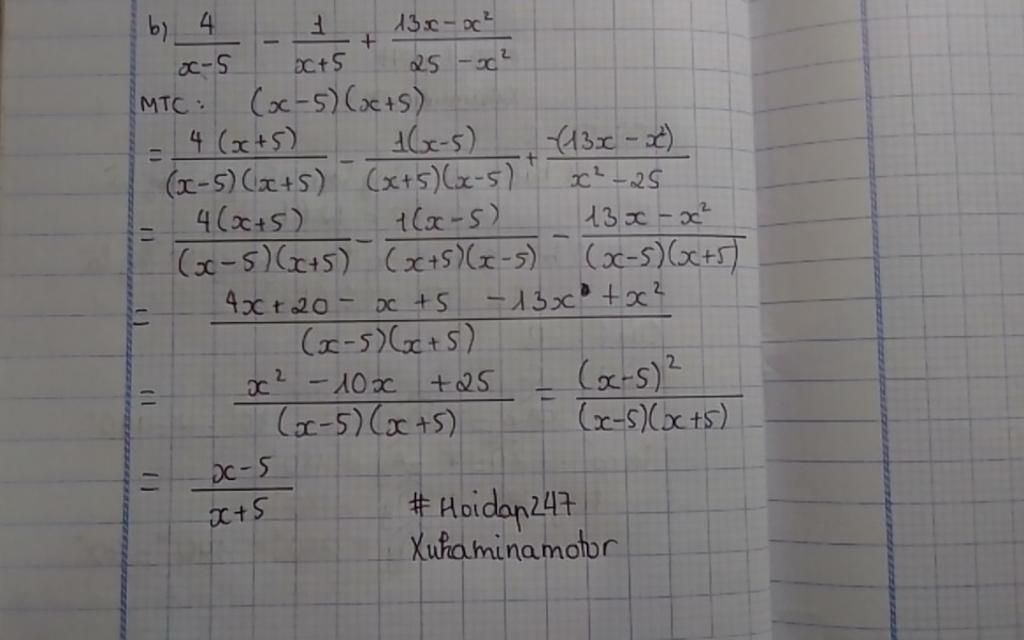 b) 4/(x-5) - 1/(x+5) + (13x-x²)/(25-x²)
MTC: (x-5)(x+5)
= 4(x+5)/((x-5)(x+5)) - 1(x-5)/((x+5)(x-5)) + -(13x-x²)/(x²-25)
= 4(x+5)/((x-5)(x+5)) - 1(x-5)/((x+5)(x-5)) - (13x-x²)/((x-5)(x+5))
= (4x+20-x+5-13x+x²)/((x-5)(x+5))
= (x²-10x+25)/((x-5)(x+5)) = (x-5)²/((x-5)(x+5))
= (x-5)/(x+5)
#Hoidap247
Xukaminamotor